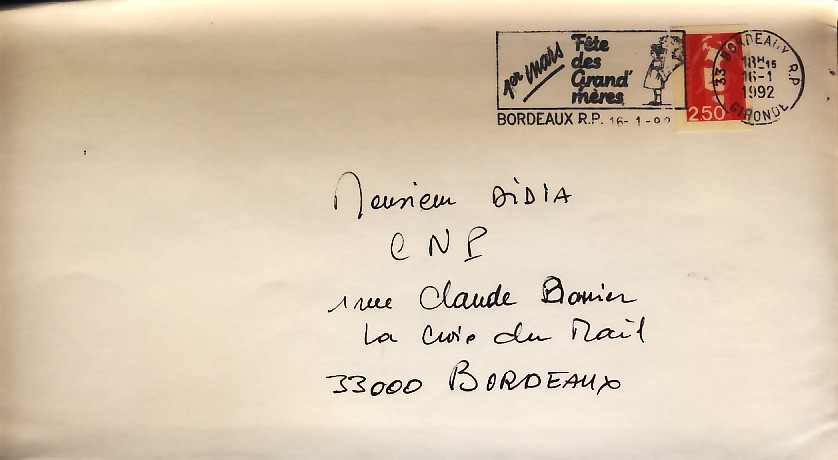 1er mars
Fête
des
Grand'
mères
BORDEAUX R.P. 16-1-92
2.50
33 BORDEAUX R.P.
18H15
16-1
1992
GIRONDE
Monsieur DIDIA
CNP
1 rue Claude Bonnier
La Croix du Mail
33000 BORDEAUX